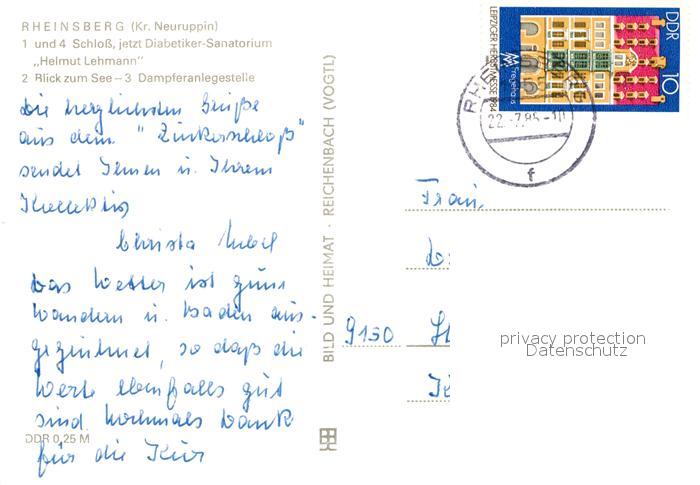 RHEINSBERG (Kr. Neuruppin)
1 und 4 Schloß, jetzt Diabetiker-Sanatorium
„Helmut Lehmann"
2 Blick zum See – 3 Dampferanlegestelle
Die herzlichsten Grüße
aus dem "Zuckerschloß"
sendet Ihnen u. Ihrem
Kollektiv
Christa
Das Wetter ist zum
Wandern u. Baden aus-
gezeichnet, so daß die
Werte ebenfalls gut
sind. Nochmals Dank
für die Kur
DDR 0,25 M
BILD UND HEIMAT · REICHENBACH (VOGTL)
DDR
10
LEIPZIGER HERBSTMESSE 1984
Fregehaus
22.-7.85-10
f
Frau
9130
privacy protection
Datenschutz